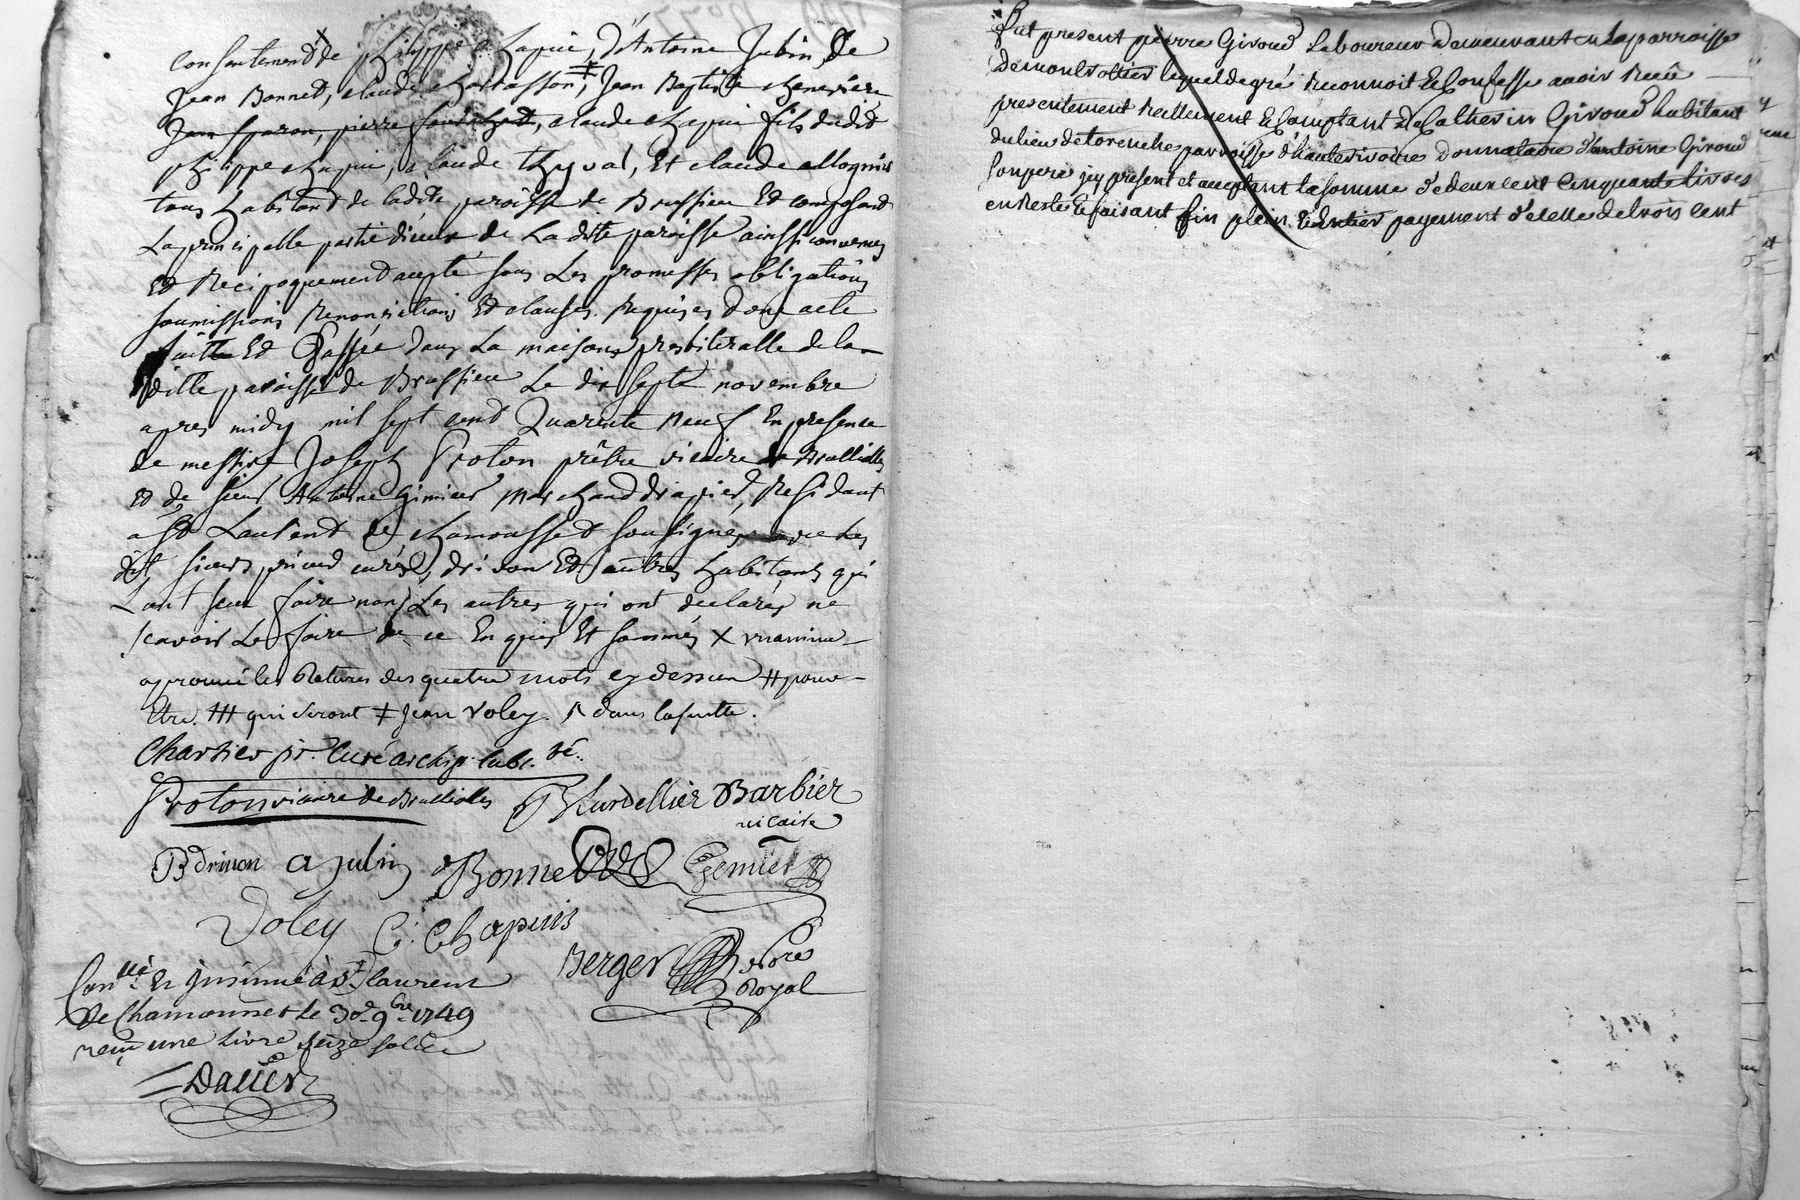 consentement de philippe chapui, d'Antoine Jubin, de
Jean Bonnet, claude chatasson, ‡ Jean Baptiste chenevière
Jean sparon, pierre, claude chapui fils dudit
philippe chapui, claude thyval, Et claude allognié
tous habitant de ladite paroisse de Brussieu Et composant
La principalle partie dicux de La dite paroisse ainssi convenu
Et Recipoquement acepté sous Les promesses obligations
soumissions Renonciations Et clauses Requises dont acte
faitte Et Passée dans La maison presbiteralle de la
ditte paroisse de Brussieu Le dix sept novembre
apres midy mil sept cent Quarente neuf En presence
de messire Joseph Proton prêtre vicaire de Brullioles
Et de sieur Antoine Gimier Marchand drapier, Residant
a St Laurent de chamousset soussignés avec Les
dit sieurs prieur curé, drivon Et autres habitants qui
Lont sceu faire non Les autres qui ont declarés ne
scavoir Le faire de ce Enquis Et sommés X unanime
aprouvé les Ratures des quatre mots cy dessein # pouv
Etre. ⧻ qui seront ‡ jean voley. dans lasuitte.
Chartier pr. Curé archip. Lubl. Ré.
Proton vicaire de Brullioles P Kurdellier Barbier
vicaire
B drivon a jubin Bonnet Gemier
Voley C. Chapuis
Berger Nore
Royal
Con.llé Et jnsinué à St laurent
De Chamousset le 30e 9bre 1749
reçu une Livre seize sols
Dalier
Fut present pierre Giroud Laboureur Demeurant en la parroisse
Demontrottier lequel degré Reconnoit & Confesse avoir Receu
presentement Reellement & Comptant de Catherin Giroud habitant
du lieu de torenche parroisse d'hauterivoire Donnataire d'antoine Giroud
son pere jcy present et acceptant la somme de deux cent Cinquante livres
en Reste & faisant fin plein & Entier payement d'icelle de trois cent